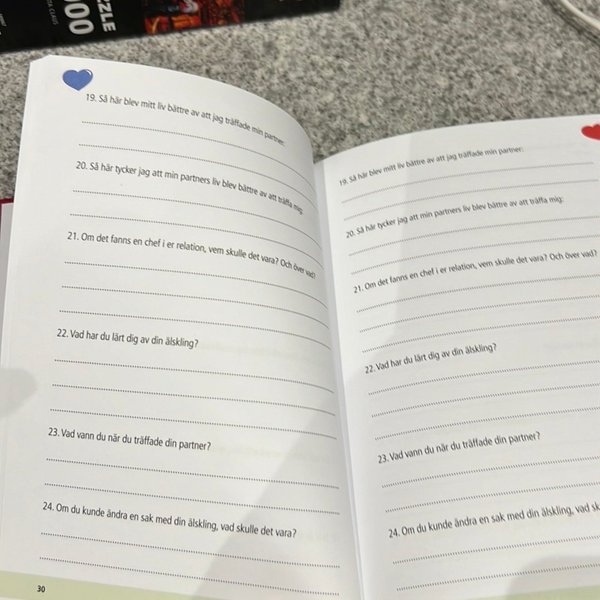 ZZLE
00
19. Så här blev mitt liv bättre av att jag träffade min partner:
20. Så här tycker jag att min partners liv blev bättre av att träffa mig:
21. Om det fanns en chef i er relation, vem skulle det vara? Och över vad?
22. Vad har du lärt dig av din älskling?
23. Vad vann du när du träffade din partner?
24. Om du kunde ändra en sak med din älskling, vad skulle det vara?
30
19. Så här blev mitt liv bättre av att jag träffade min partner:
20. Så här tycker jag att min partners liv blev bättre av att träffa mig:
21. Om det fanns en chef i er relation, vem skulle det vara? Och över vad?
22. Vad har du lärt dig av din älskling?
23. Vad vann du när du träffade din partner?
24. Om du kunde ändra en sak med din älskling, vad sk